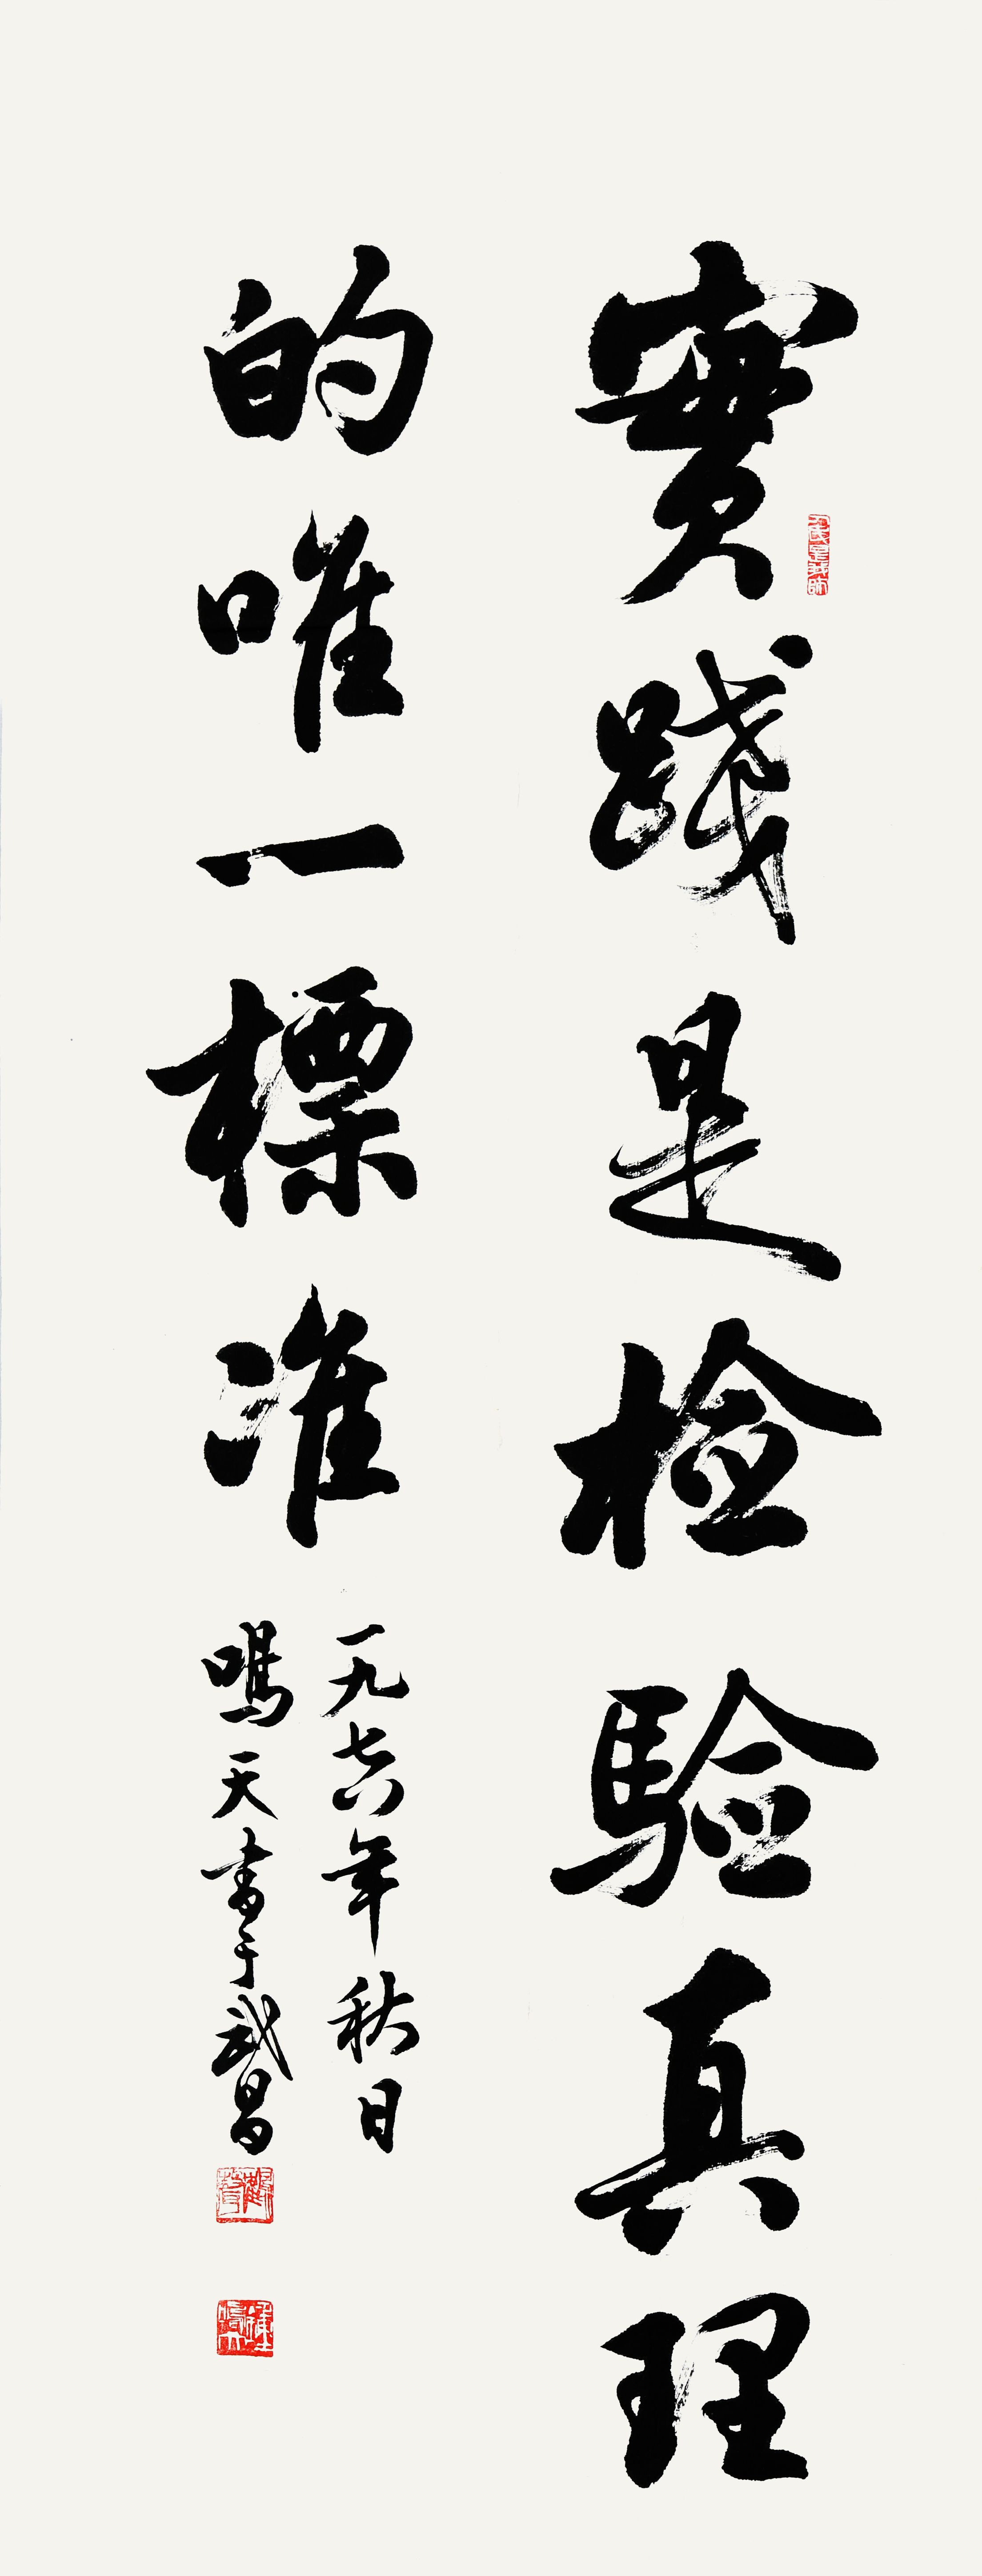 實踐是檢驗真理
的唯一標准
一九七六年秋日
鳴天書于武昌